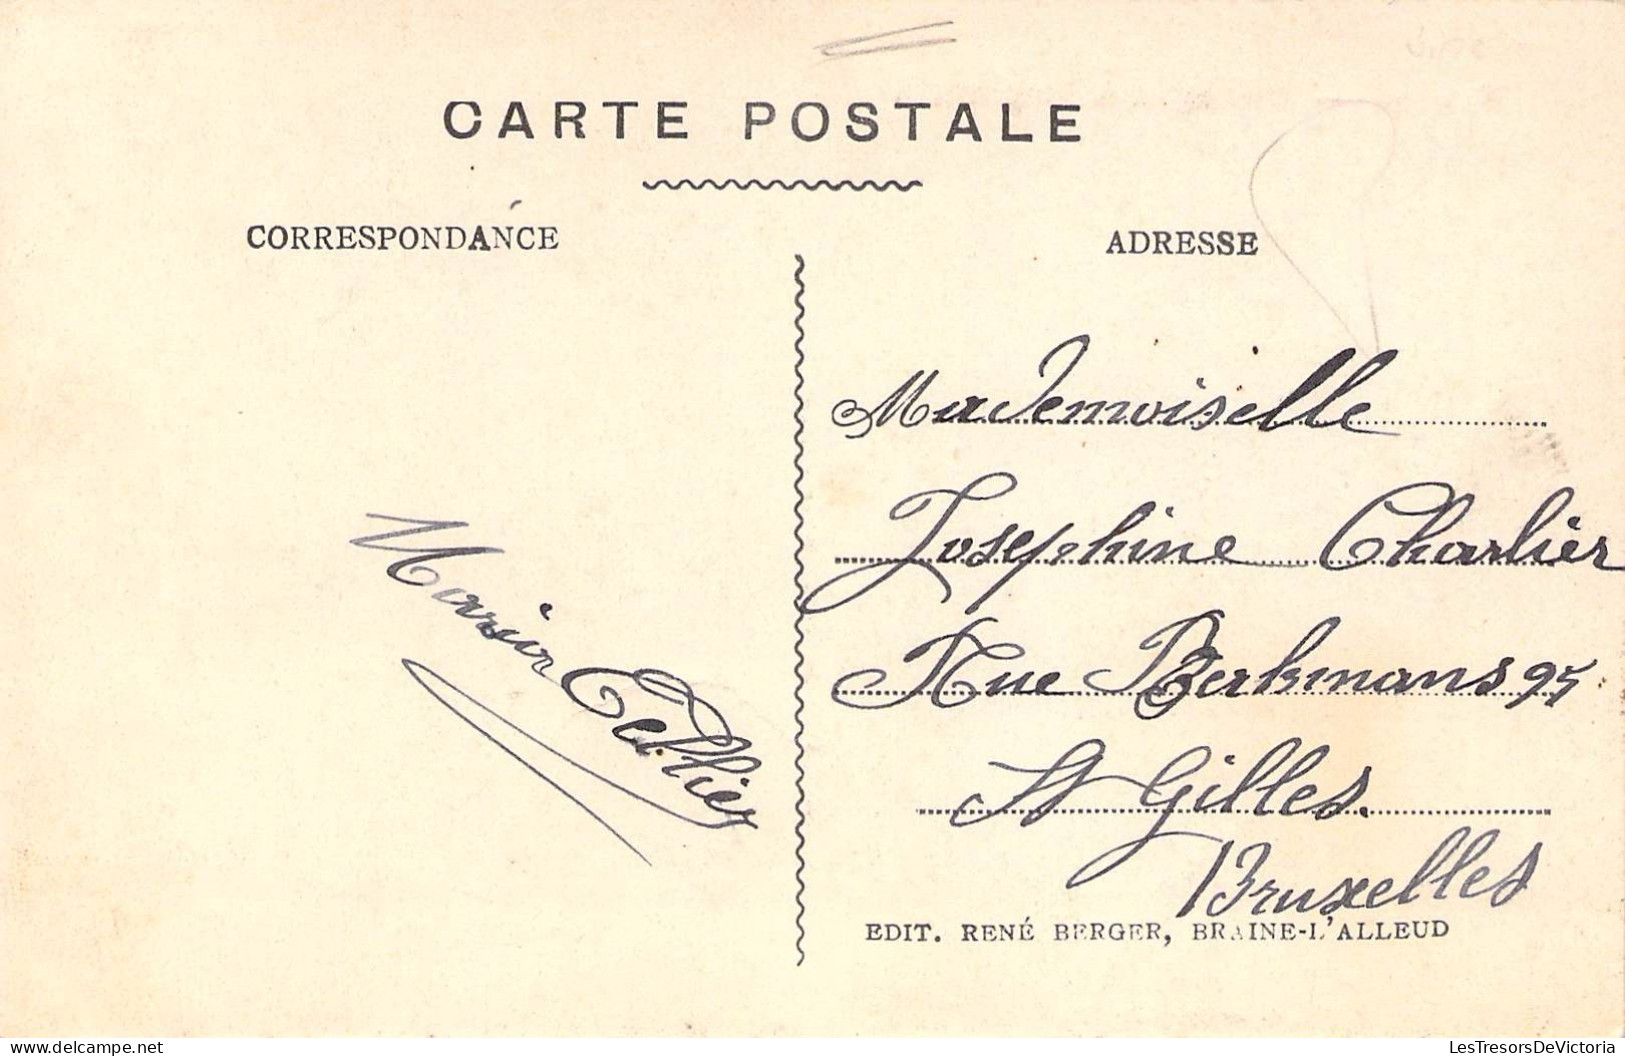 CARTE POSTALE
CORRESPONDANCE
ADRESSE
Mademoiselle
Josephine Charlier
Rue Berkmans 95
St Gilles.
Bruxelles
Tellier
EDIT. RENÉ BERGER, BRAINE-L'ALLEUD
LesTresorsDeVictoria